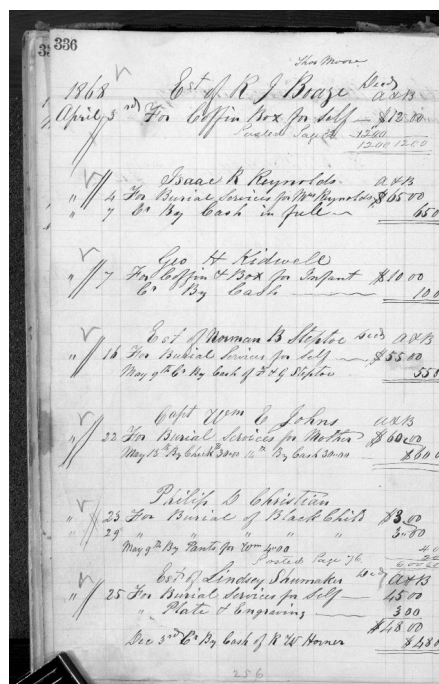 336
Thos Moore
1868 Est of R J Boaze Decd A & B
April 3rd For Coffin Box for Self — $12.00
Posted Page 12.00
12.00 12.00
Isaac R Reynolds A & B
" 4 For Burial Services for Wm Reynolds $65.00
" 7 Cr By Cash in full 650
Geo H Kidwell
" 7 For Coffin & Box for Infant $10.00
Cr By Cash 100
Est of Norman B Steptoe Decd A & B
" 16 For Burial Services for Self — $55.00
May 9th Cr By Cash of F & G Steptoe 550
Capt Wm E Johns A & B
" 22 For Burial Services for Mother $60.00
May 15th By Check 30.00 By Cash 30.00 $600
Philip D Christian
" 23 For Burial of Black Child $3.00
" 29 " " " " " 3.00
May 9th By Pants for Wm 4.00 40
Posted Page 76
Est of Lindsey Shumaker Decd A & B
" 25 For Burial Services for Self — 45.00
" Plate & Engraving — 3.00
$48.00
Dec 3rd Cr By Cash of R W Horner $480
256